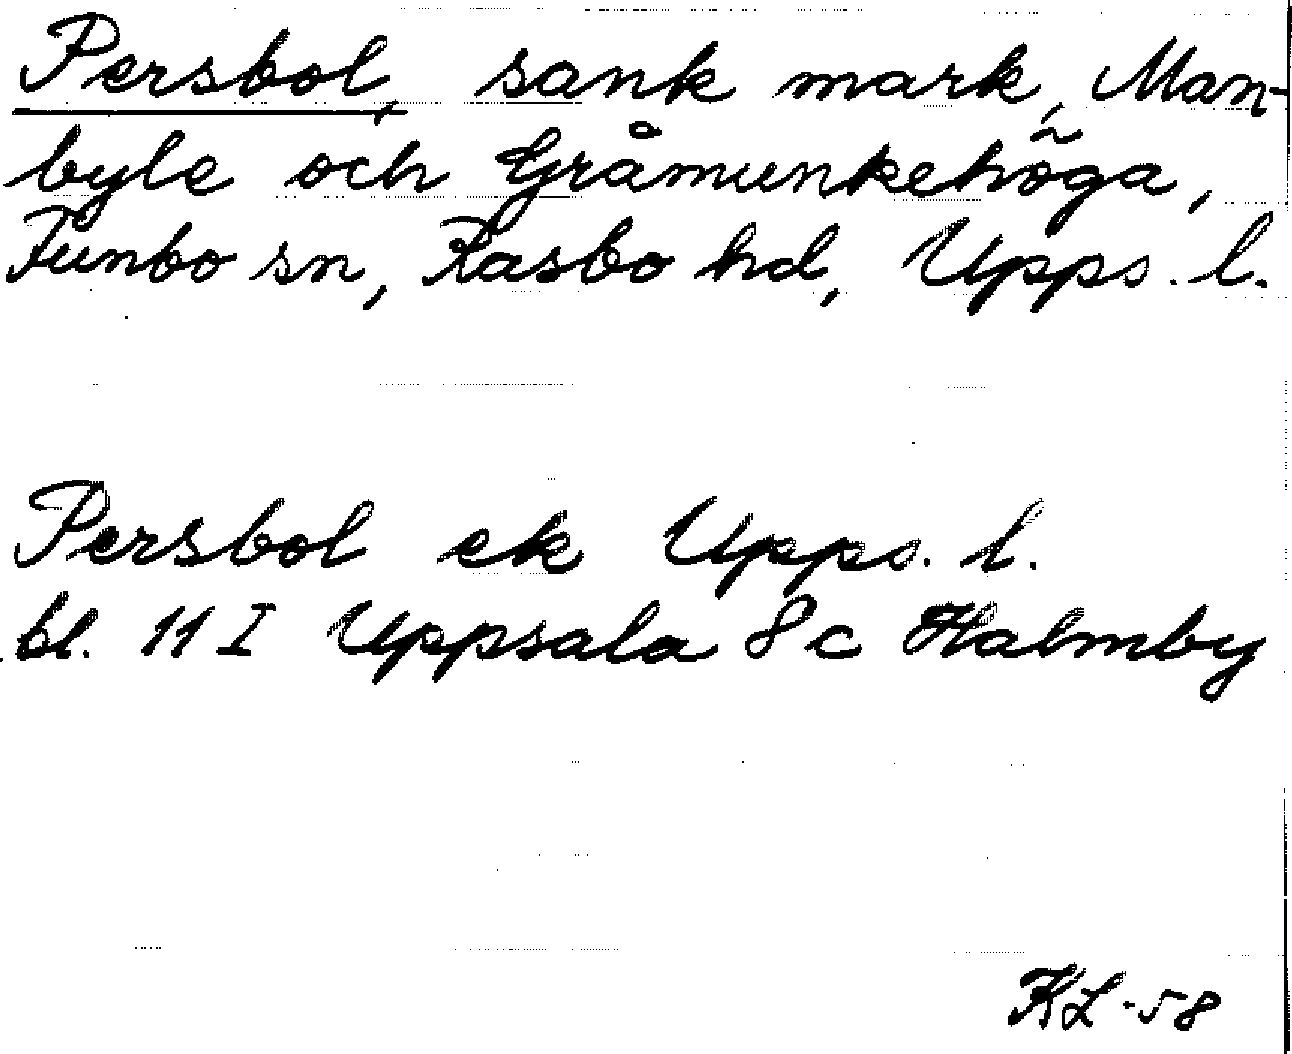 Persbol, sank mark, Man-
byle och Gråmunkehöga,
Funbo sn, Rasbo hd, Upps. l.
Persbol ek Upps. l.
bl. 11 I Uppsala 8c Halmby
KL -58